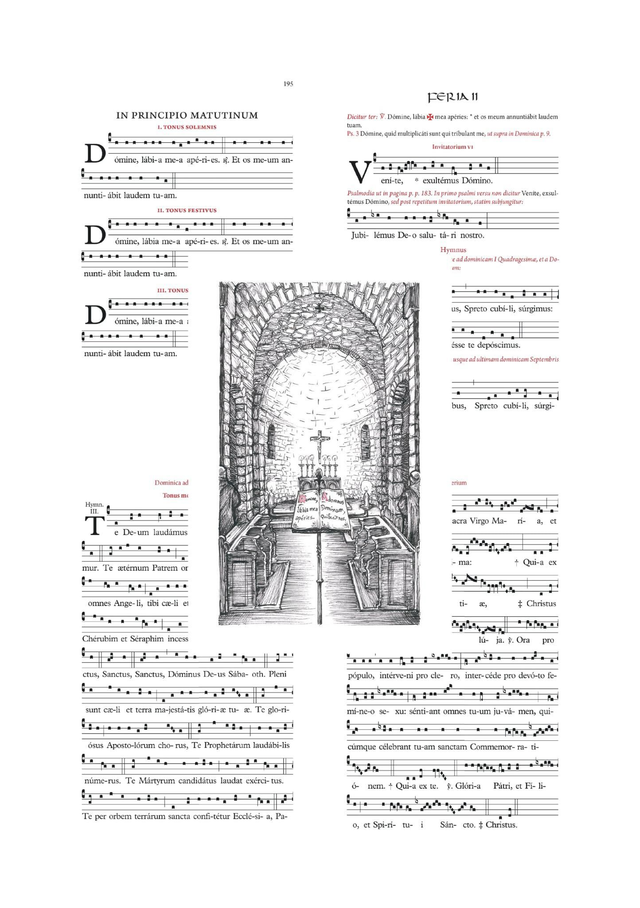 195
IN PRINCIPIO MATUTINUM
I. TONUS SOLEMNIS
Dómine, lábi-a me-a apé-ri-es. ℟. Et os me-um an-
nunti-ábit laudem tu-am.
II. TONUS FESTIVUS
Dómine, lábia me-a apé-ri-es. ℟. Et os me-um an-
nunti-ábit laudem tu-am.
III. TONUS
Dómine, lábi-a me-a
nunti-ábit laudem tu-am.
Dominica ad
Hymn.
III.
Te De-um laudámus
mur. Te ætérnum Patrem or
omnes Ange-li, tibi cæ-li et
Chérubim et Séraphim incess
ctus, Sanctus, Sanctus, Dóminus De-us Sába- oth. Pleni
sunt cæ-li et terra ma-jestá-tis gló-ri-æ tu- æ. Te glo-ri-
ósus Aposto-lórum cho- rus, Te Prophetárum laudábi-lis
núme-rus. Te Mártyrum candidátus laudat exérci- tus.
Te per orbem terrárum sancta confi-tétur Ecclé-si- a, Pa-
FERIA II
Dicitur ter: ℣. Dómine, lábia ✠ mea apéries: * et os meum annuntiábit laudem
tuam.
Ps. 3 Dómine, quid multiplicáti sunt qui tribulant me, ut supra in Dominica p. 9.
Invitatorium VI
Vení-te, * exultémus Dómino.
Psalmodia ut in pagina p. p. 183. In primo psalmi versu non dicitur Veníte, exsul-
témus Dómino, sed post repetitum invitatorium, statim subjungitur:
Jubi- lémus De-o salu- tá- ri nostro.
Hymnus
x ad dominicam I Quadragesimæ, et a Do-
om:
us, Spreto cubí-li, súrgimus:
ésse te depóscimus.
usque ad ultimam dominicam Septembris
bus, Spreto cubí-li, súrgi-
erium
acra Virgo Ma- rí- a, et
ma: † Qui-a ex
ti- æ, ‡ Christus
lú- ja. ℣. Ora pro
pópulo, intérve-ni pro cle- ro, inter-céde pro devó-to fe-
mí-ne-o se- xu: sénti-ant omnes tu-um ju-vá- men, qui-
cúmque célebrant tu-am sanctam Commemor- ra- ti-
ó- nem. † Qui-a ex te. ℣. Glóri-a Pátri, et Fí- li-
o, et Spi-rí- tu- i Sán- cto. ‡ Christus.